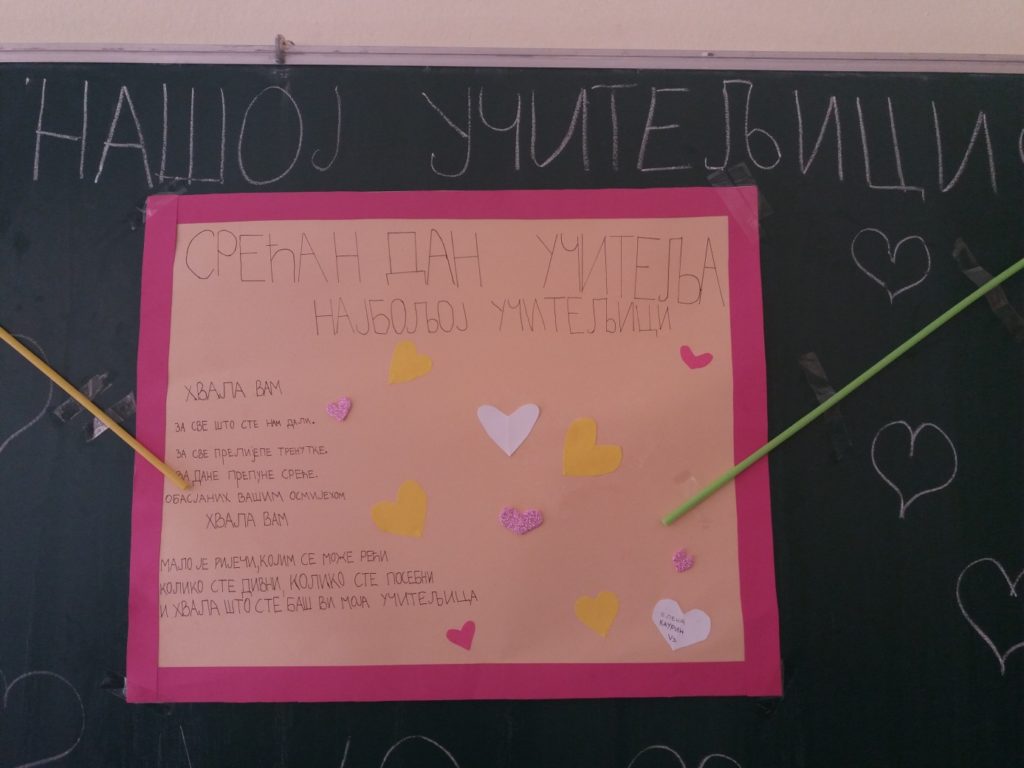 НАШОЈ УЧИТЕЉИЦИ
СРЕЋАН ДАН УЧИТЕЉА
НАЈБОЉОЈ УЧИТЕЉИЦИ
ХВАЛА ВАМ
ЗА СВЕ ШТО СТЕ НАМ ДАЛИ.
ЗА СВЕ ПРЕЛИЈЕПЕ ТРЕНУТКЕ.
ЗА ДАНЕ ПРЕПУНЕ СРЕЋЕ.
ОБАСЈАНИХ ВАШИМ ОСМИЈЕХОМ
ХВАЛА ВАМ
МАЛО ЈЕ РИЈЕЧИ, КОЈИМ СЕ МОЖЕ РЕЋИ
КОЛИКО СТЕ ДИВНИ, КОЛИКО СТЕ ПОСЕБНИ
И ХВАЛА ШТО СТЕ БАШ ВИ МОЈА УЧИТЕЉИЦА
ЕЛЕНА
КАУРИН